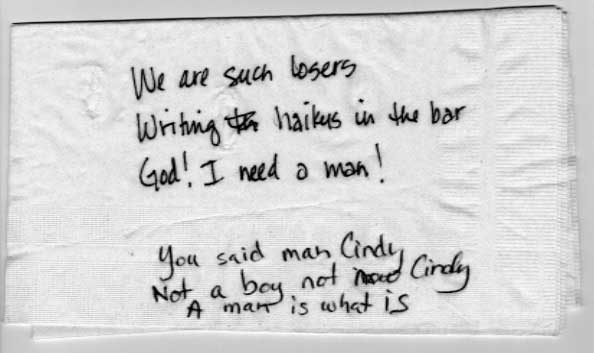 We are such losers
Writing haikus in the bar
God! I need a man!
You said man Cindy
Not a boy not Cindy
A man is what is